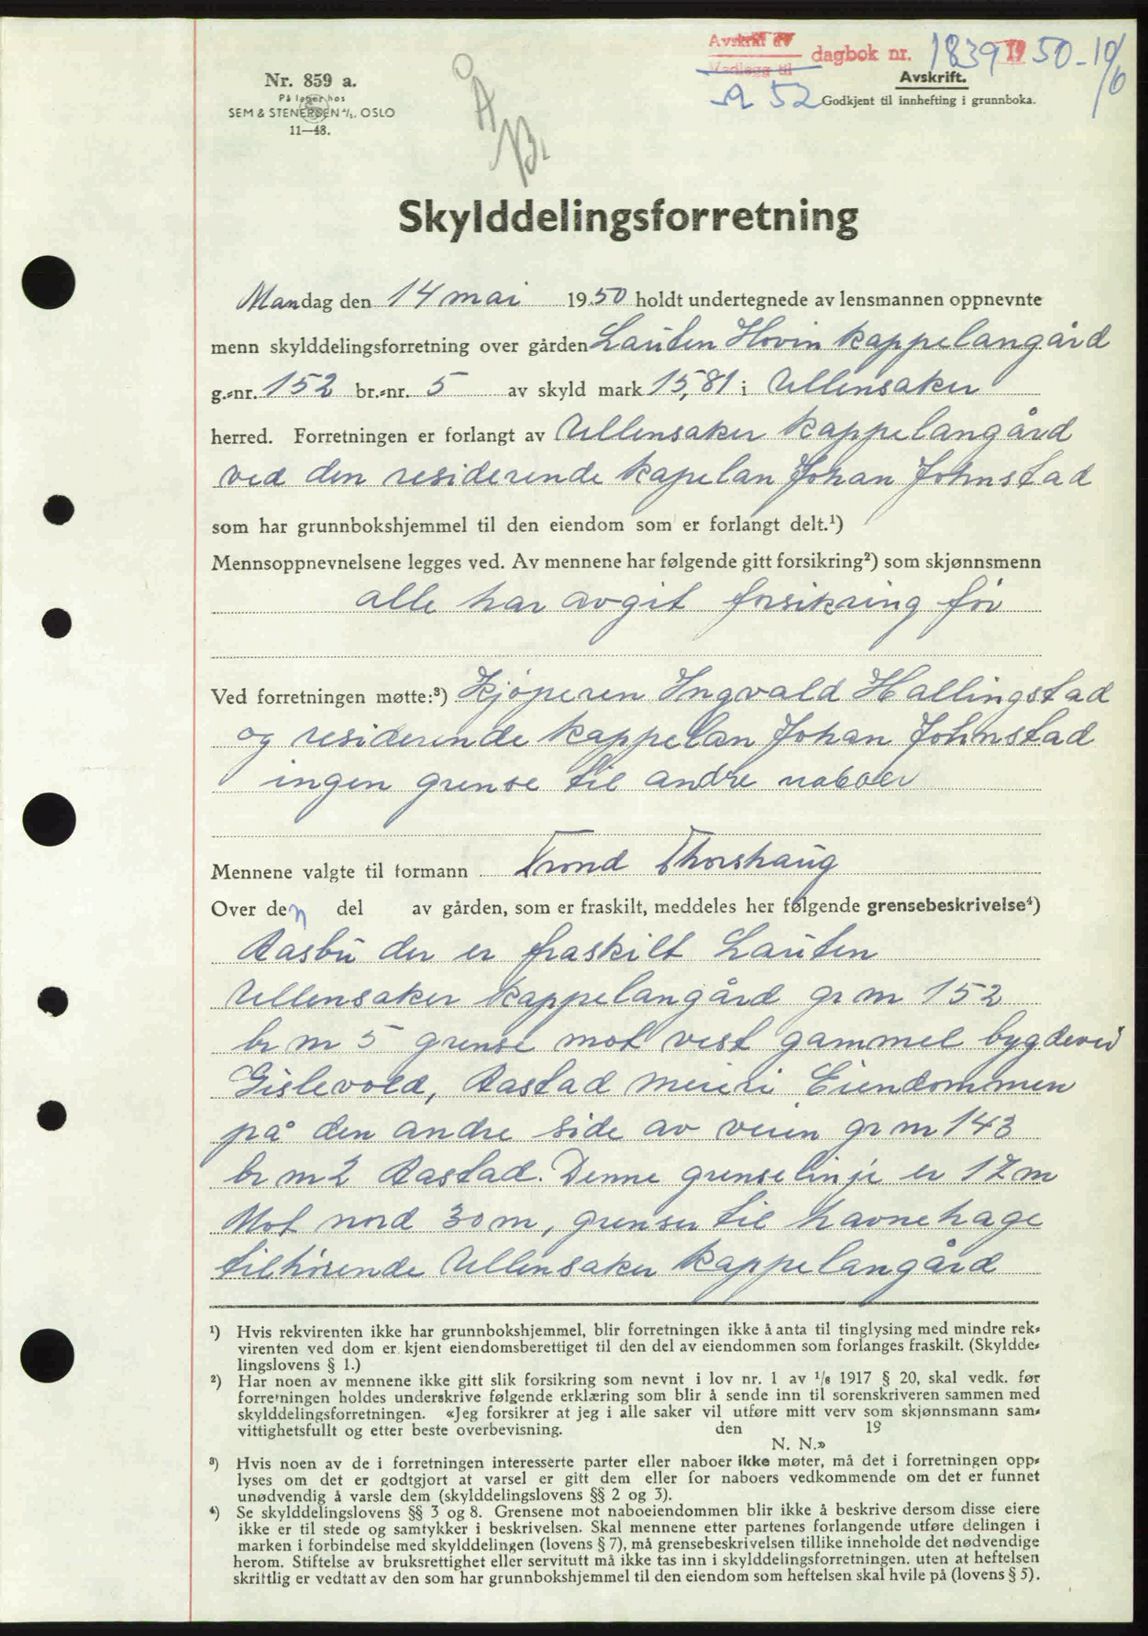 Avskrift av
Vedlegg til
dagbok nr. 1839 1950-10/6
Avskrift.
A 52 Godkjent til innhefting i grunnboka.
Nr. 859 a.
På lager hos
SEM & STENERSEN A/S. OSLO
11—48.
Skylddelingsforretning
Mandag den 14 mai 1950 holdt undertegnede av lensmannen oppnevnte
menn skylddelingsforretning over gården Lauten Hovin kappelangård
g.-nr. 152 br.-nr. 5 av skyld mark 15,81 i Ullensaker
herred. Forretningen er forlangt av Ullensaker kappelangård
ved den residerende kapelan Johan Johnstad
som har grunnbokshjemmel til den eiendom som er forlangt delt.¹)
Mennsoppnevnelsene legges ved. Av mennene har følgende gitt forsikring²) som skjønnsmenn
alle har avgit forsikring før
Ved forretningen møtte:³) Kjøperen Ingvald Hallingstad
og residerende kappelan Johan Johnstad
ingen grense til andre naboer
Mennene valgte til formann Trond Thorshaug
Over den del av gården, som er fraskilt, meddeles her følgende grensebeskrivelse⁴)
Aasbu der er fraskilt Lauten
Ullensaker kappelangård gr nr 152
br nr 5 grense mot vest gammel bygdevei
Gislevold, Aastad meieri Eiendommen
på den andre side av veien gr nr 143
br nr 2 Aastad. Denne grenselinje er 17 m
Mot nord 30 m, grenser til havnehage
tilhørende Ullensaker kappelangård
¹) Hvis rekvirenten ikke har grunnbokshjemmel, blir forretningen ikke å anta til tinglysing med mindre rek-
virenten ved dom er kjent eiendomsberettiget til den del av eiendommen som forlanges fraskilt. (Skyldde-
lingslovens § 1.)
²) Har noen av mennene ikke gitt slik forsikring som nevnt i lov nr. 1 av 1/6 1917 § 20, skal vedk. før
forretningen holdes underskrive følgende erklæring som blir å sende inn til sorenskriveren sammen med
skylddelingsforretningen. «Jeg forsikrer at jeg i alle saker vil utføre mitt verv som skjønnsmann sam-
vittighetsfullt og etter beste overbevisning. den 19
N. N.»
³) Hvis noen av de i forretningen interesserte parter eller naboer ikke møter, må det i forretningen opp-
lyses om det er godtgjort at varsel er gitt dem eller for naboers vedkommende om det er funnet
unødvendig å varsle dem (skylddelingslovens §§ 2 og 3).
⁴) Se skylddelingslovens §§ 3 og 8. Grensene mot naboeiendommen blir ikke å beskrive dersom disse eiere
ikke er til stede og samtykker i beskrivelsen. Skal mennene etter partenes forlangende utføre delingen i
marken i forbindelse med skylddelingen (lovens § 7), må grensebeskrivelsen tillike inneholde det nødvendige
herom. Stiftelse av bruksrettighet eller servitutt må ikke tas inn i skylddelingsforretningen, uten at heftelsen
skriftlig er vedtatt av den som har grunnbokshjemmel til den eiendom som heftelsen skal hvile på (lovens § 5).